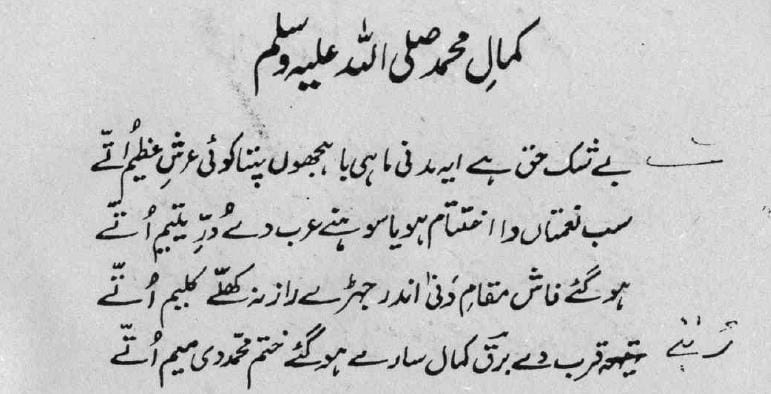 کمالِ محمد صلی اللہ علیہ وسلم
بے شک حق ہے ایہ مدنی ماہی باہجھوں پہنتا کوئی عرشِ عظیم اُتّے
سب نعمتاں دا اختتام ہویا سوہنے عرب دے دُرِّ یتیم اُتّے
ہو گئے فاش مقامِ دَنیٰ اندر جہڑے راز نہ کھلّے کلیم اُتّے
قرب دے برق کمال سارے ہو گئے ختم محمّد دی میم اُتّے